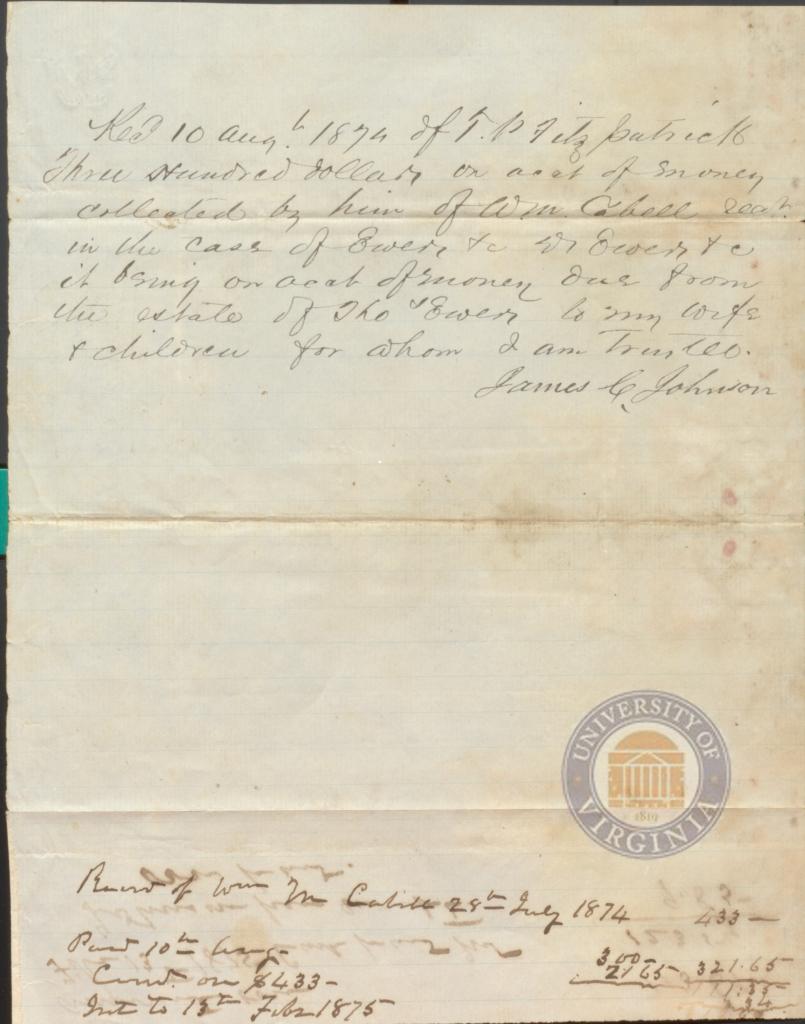 Recd 10 Augt. 1874 of T. P. Fitzpatrick
Three Hundred dollars on acct of money
collected by him of Wm. Cabell
in the case of Ewers &c vs Ewers &c
it being on acct of money due from
the estate of Thos Ewers to my wife
& children for whom I am Trustee.
James C. Johnson
UNIVERSITY OF VIRGINIA
1819
of Wm M Cabell 28th July 1874 433 —
Paid 10th Aug — 300 —
on $433 — 21.65 321.65
Int to 15th Feby 1875